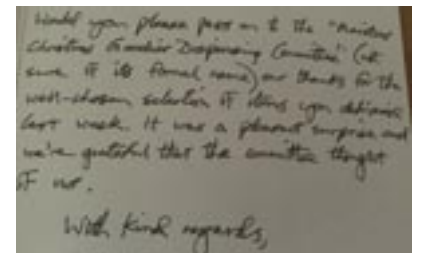 Would you please pass on to the "
Christmas Committee" (not
sure of its formal name) our thanks for the
well-chosen selection of items you delivered
last week. It was a pleasant surprise and
we're grateful that the committee thought
of us.
With kind regards,